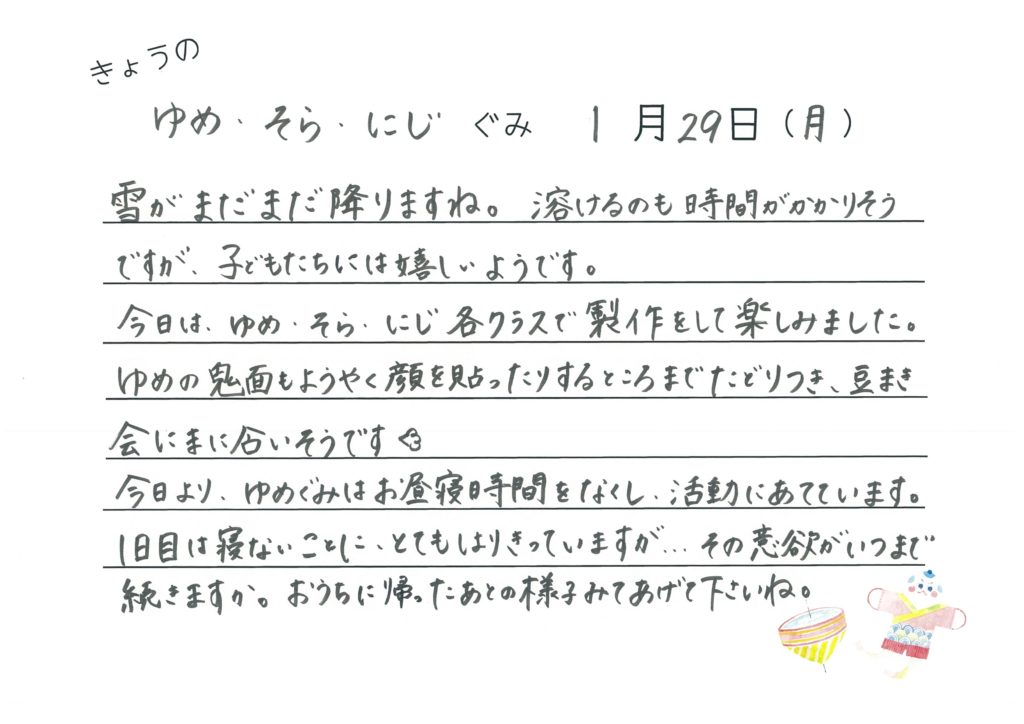 きょうの
ゆめ・そら・にじ ぐみ 1月29日(月)
雪がまだまだ降りますね。溶けるのも時間がかかりそう
ですが、子どもたちには嬉しいようです。
今日は、ゆめ・そら・にじ各クラスで製作をして楽しみました。
ゆめの鬼面もようやく顔を貼ったりするところまでたどりつき、豆まき
会にまに合いそうです
今日より、ゆめぐみはお昼寝時間をなくし、活動にあてています。
1日目は寝ないことに、とてもはりきっていますが…その意欲がいつまで
続きますか。おうちに帰ったあとの様子みてあげて下さいね。